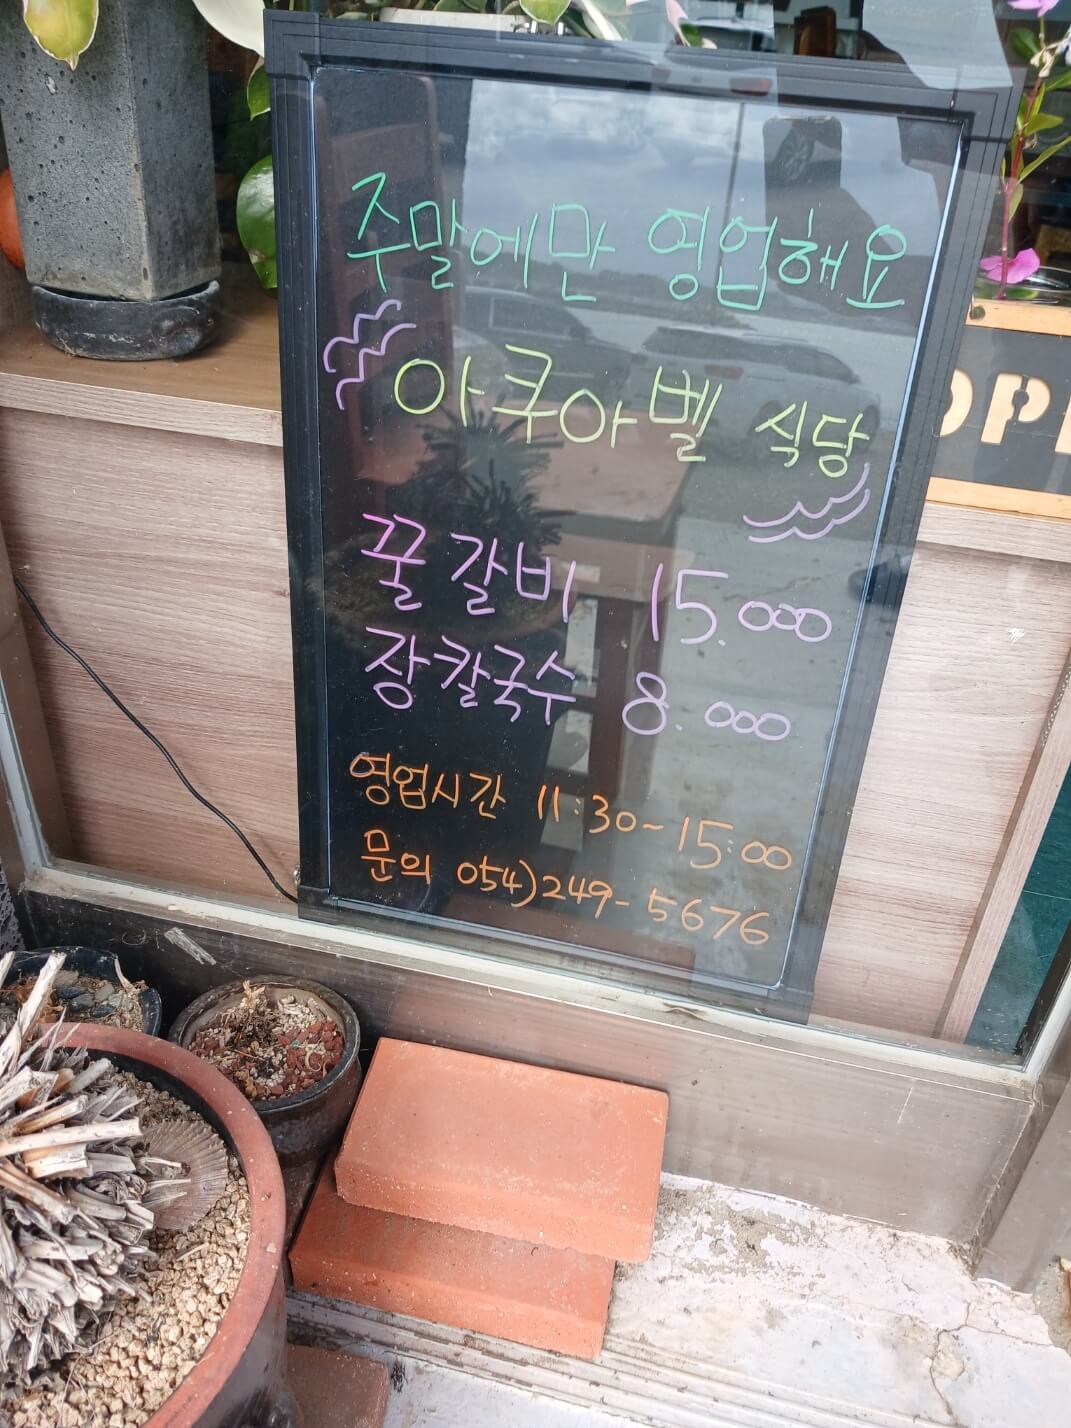 주말에만 영업해요
아쿠아벨 식당
꿀갈비 15.000
장칼국수 8.000
영업시간 11:30~15:00
문의 054)249-5676